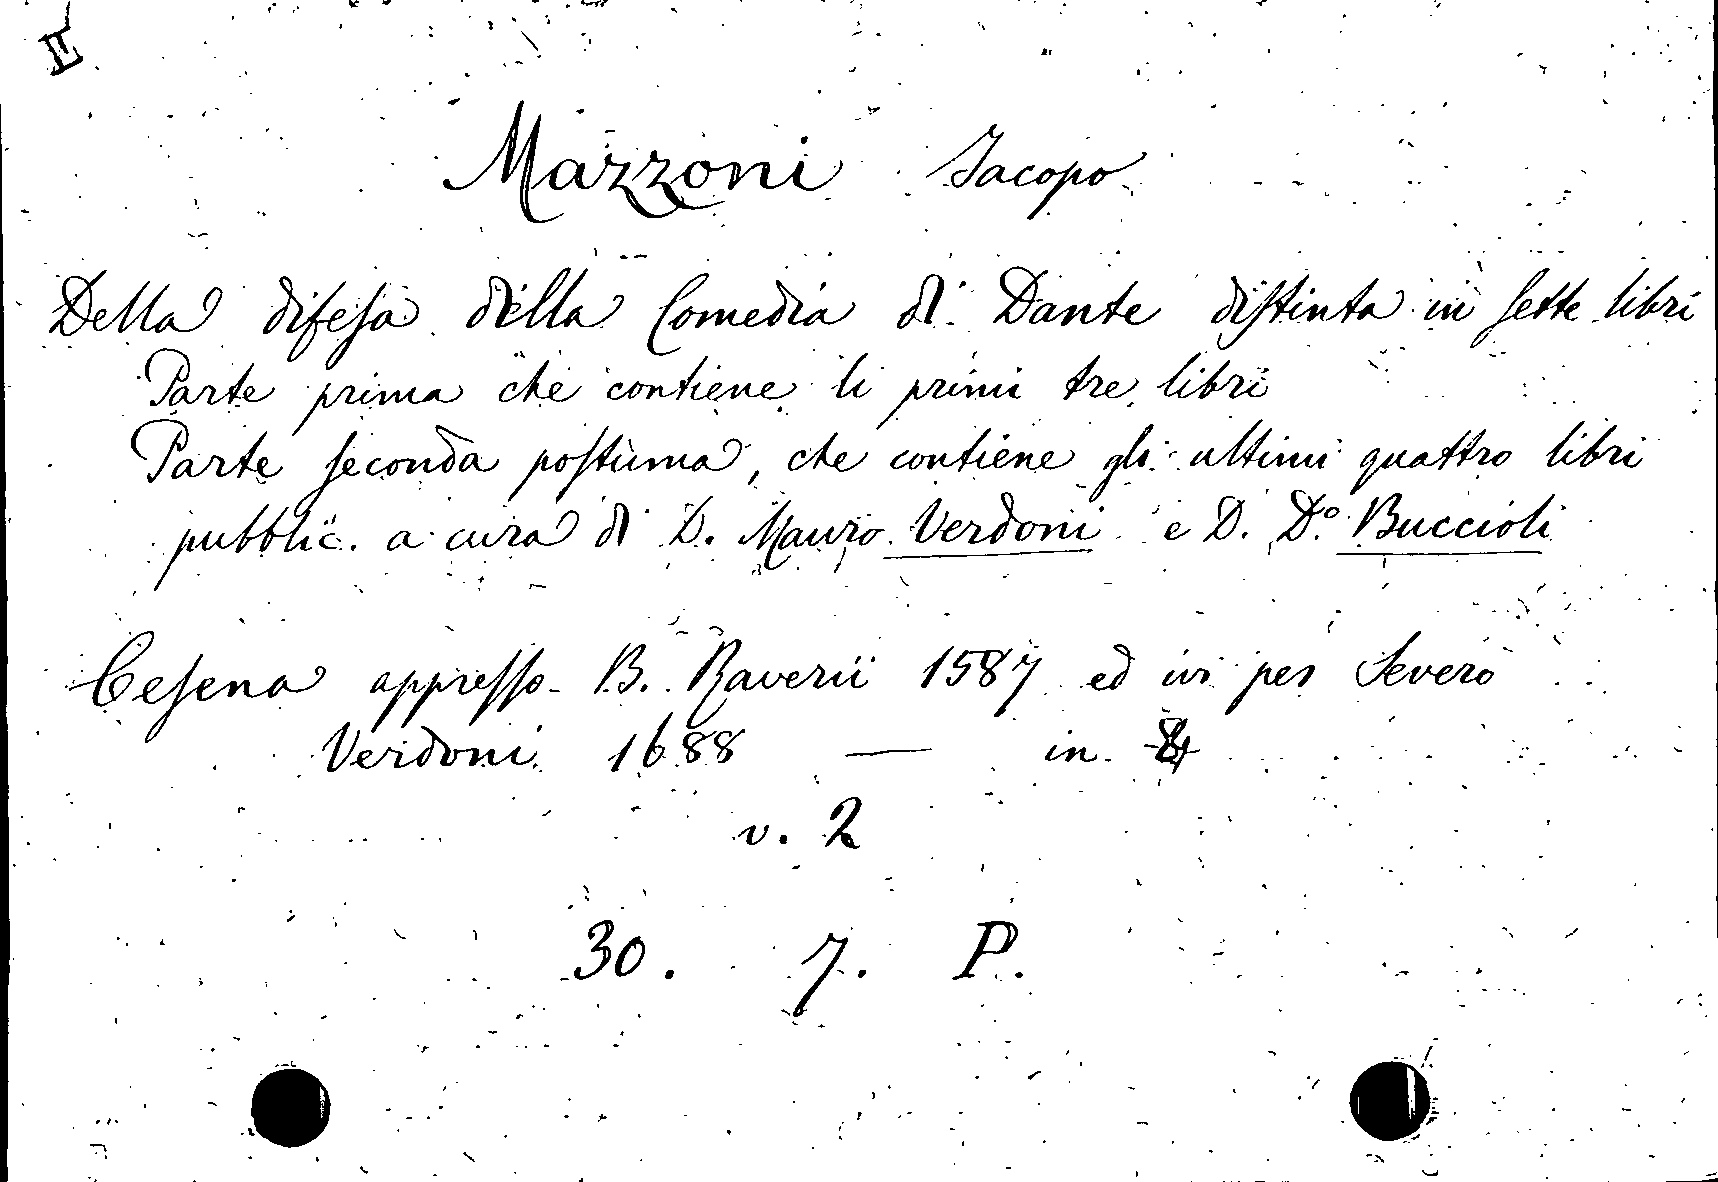 IL
Mazzoni Jacopo
Della difesa della Comedia di Dante distinta in sette libri
Parte prima che contiene li primi tre libri
Parte seconda postuma, che contiene gli ultimi quattro libri
pubblic. a cura di D. Mauro Verdoni e D. D.º Buccioli
Cesena appresso B. Raverii 1587 ed ivi per Severo
Verdoni 1688 — in 4
v. 2
30. 7. P.